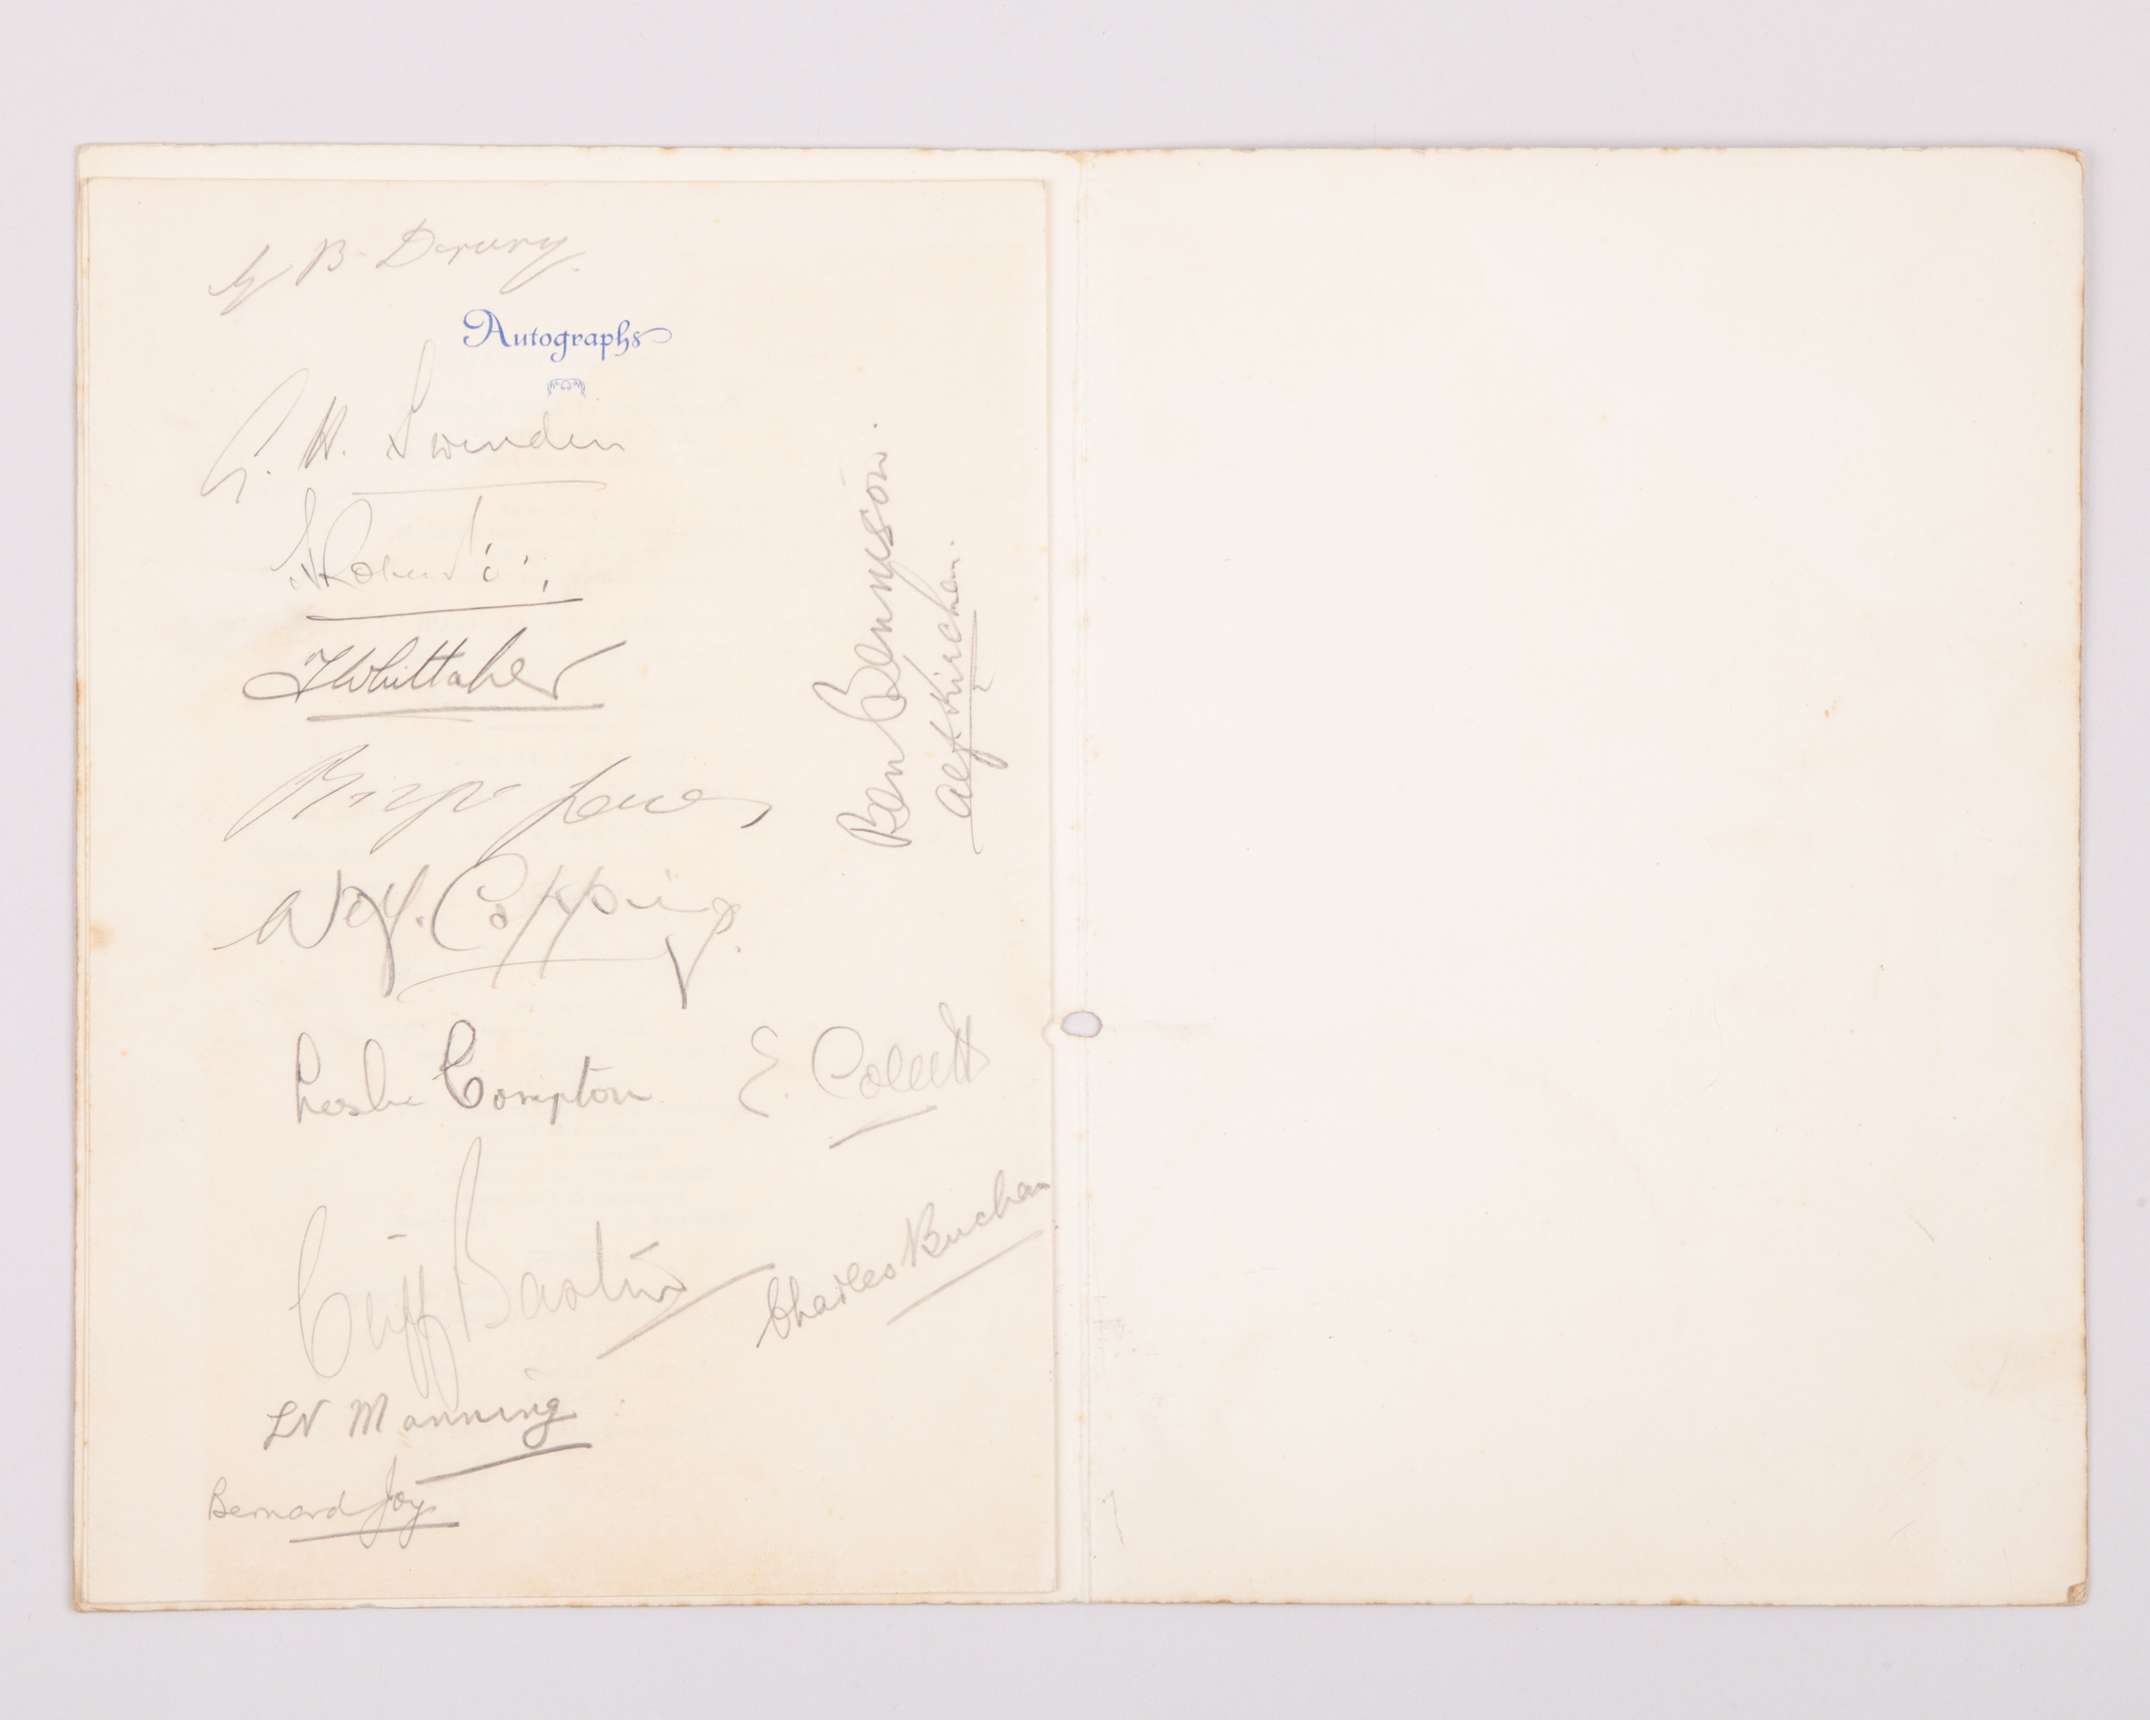 G B Drury.
Autographs
G. H. Swindin
T Whittaker
Bryn Jones
Wilf. Copping.
Leslie Compton
E. Collett
Cliff Bastin
Charles Buchan
LV Manning
Bernard Joy
Ben Bennison.
Alf Kirchen.